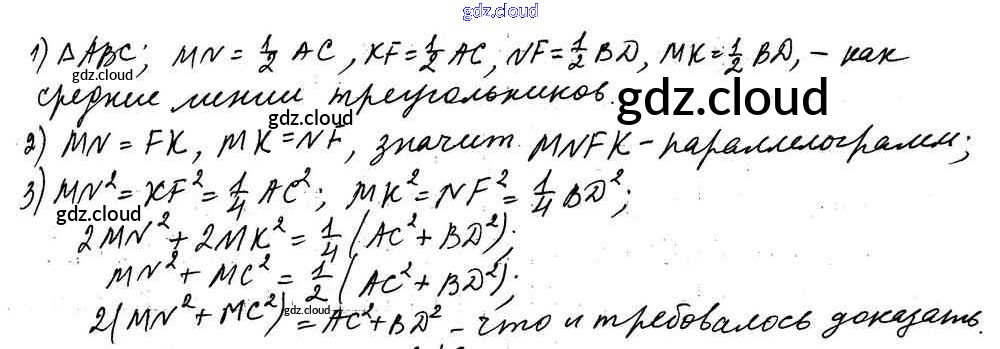 gdz.cloud
1) △ABC; MN = 1/2 AC, KF = 1/2 AC, NF = 1/2 BD, MK = 1/2 BD, – как
gdz.cloud
средние линии треугольников.
gdz.cloud
2) MN = FK, MK = NF, значит MNFK – параллелограмм;
gdz.cloud
3) MN² = KF² = 1/4 AC²; MK² = NF² = 1/4 BD²;
gdz.cloud
2MN² + 2MK² = 1/4 (AC² + BD²);
MN² + MC² = 1/2 (AC² + BD²);
2(MN² + MC²) = AC² + BD² – что и требовалось доказать.
gdz.cloud